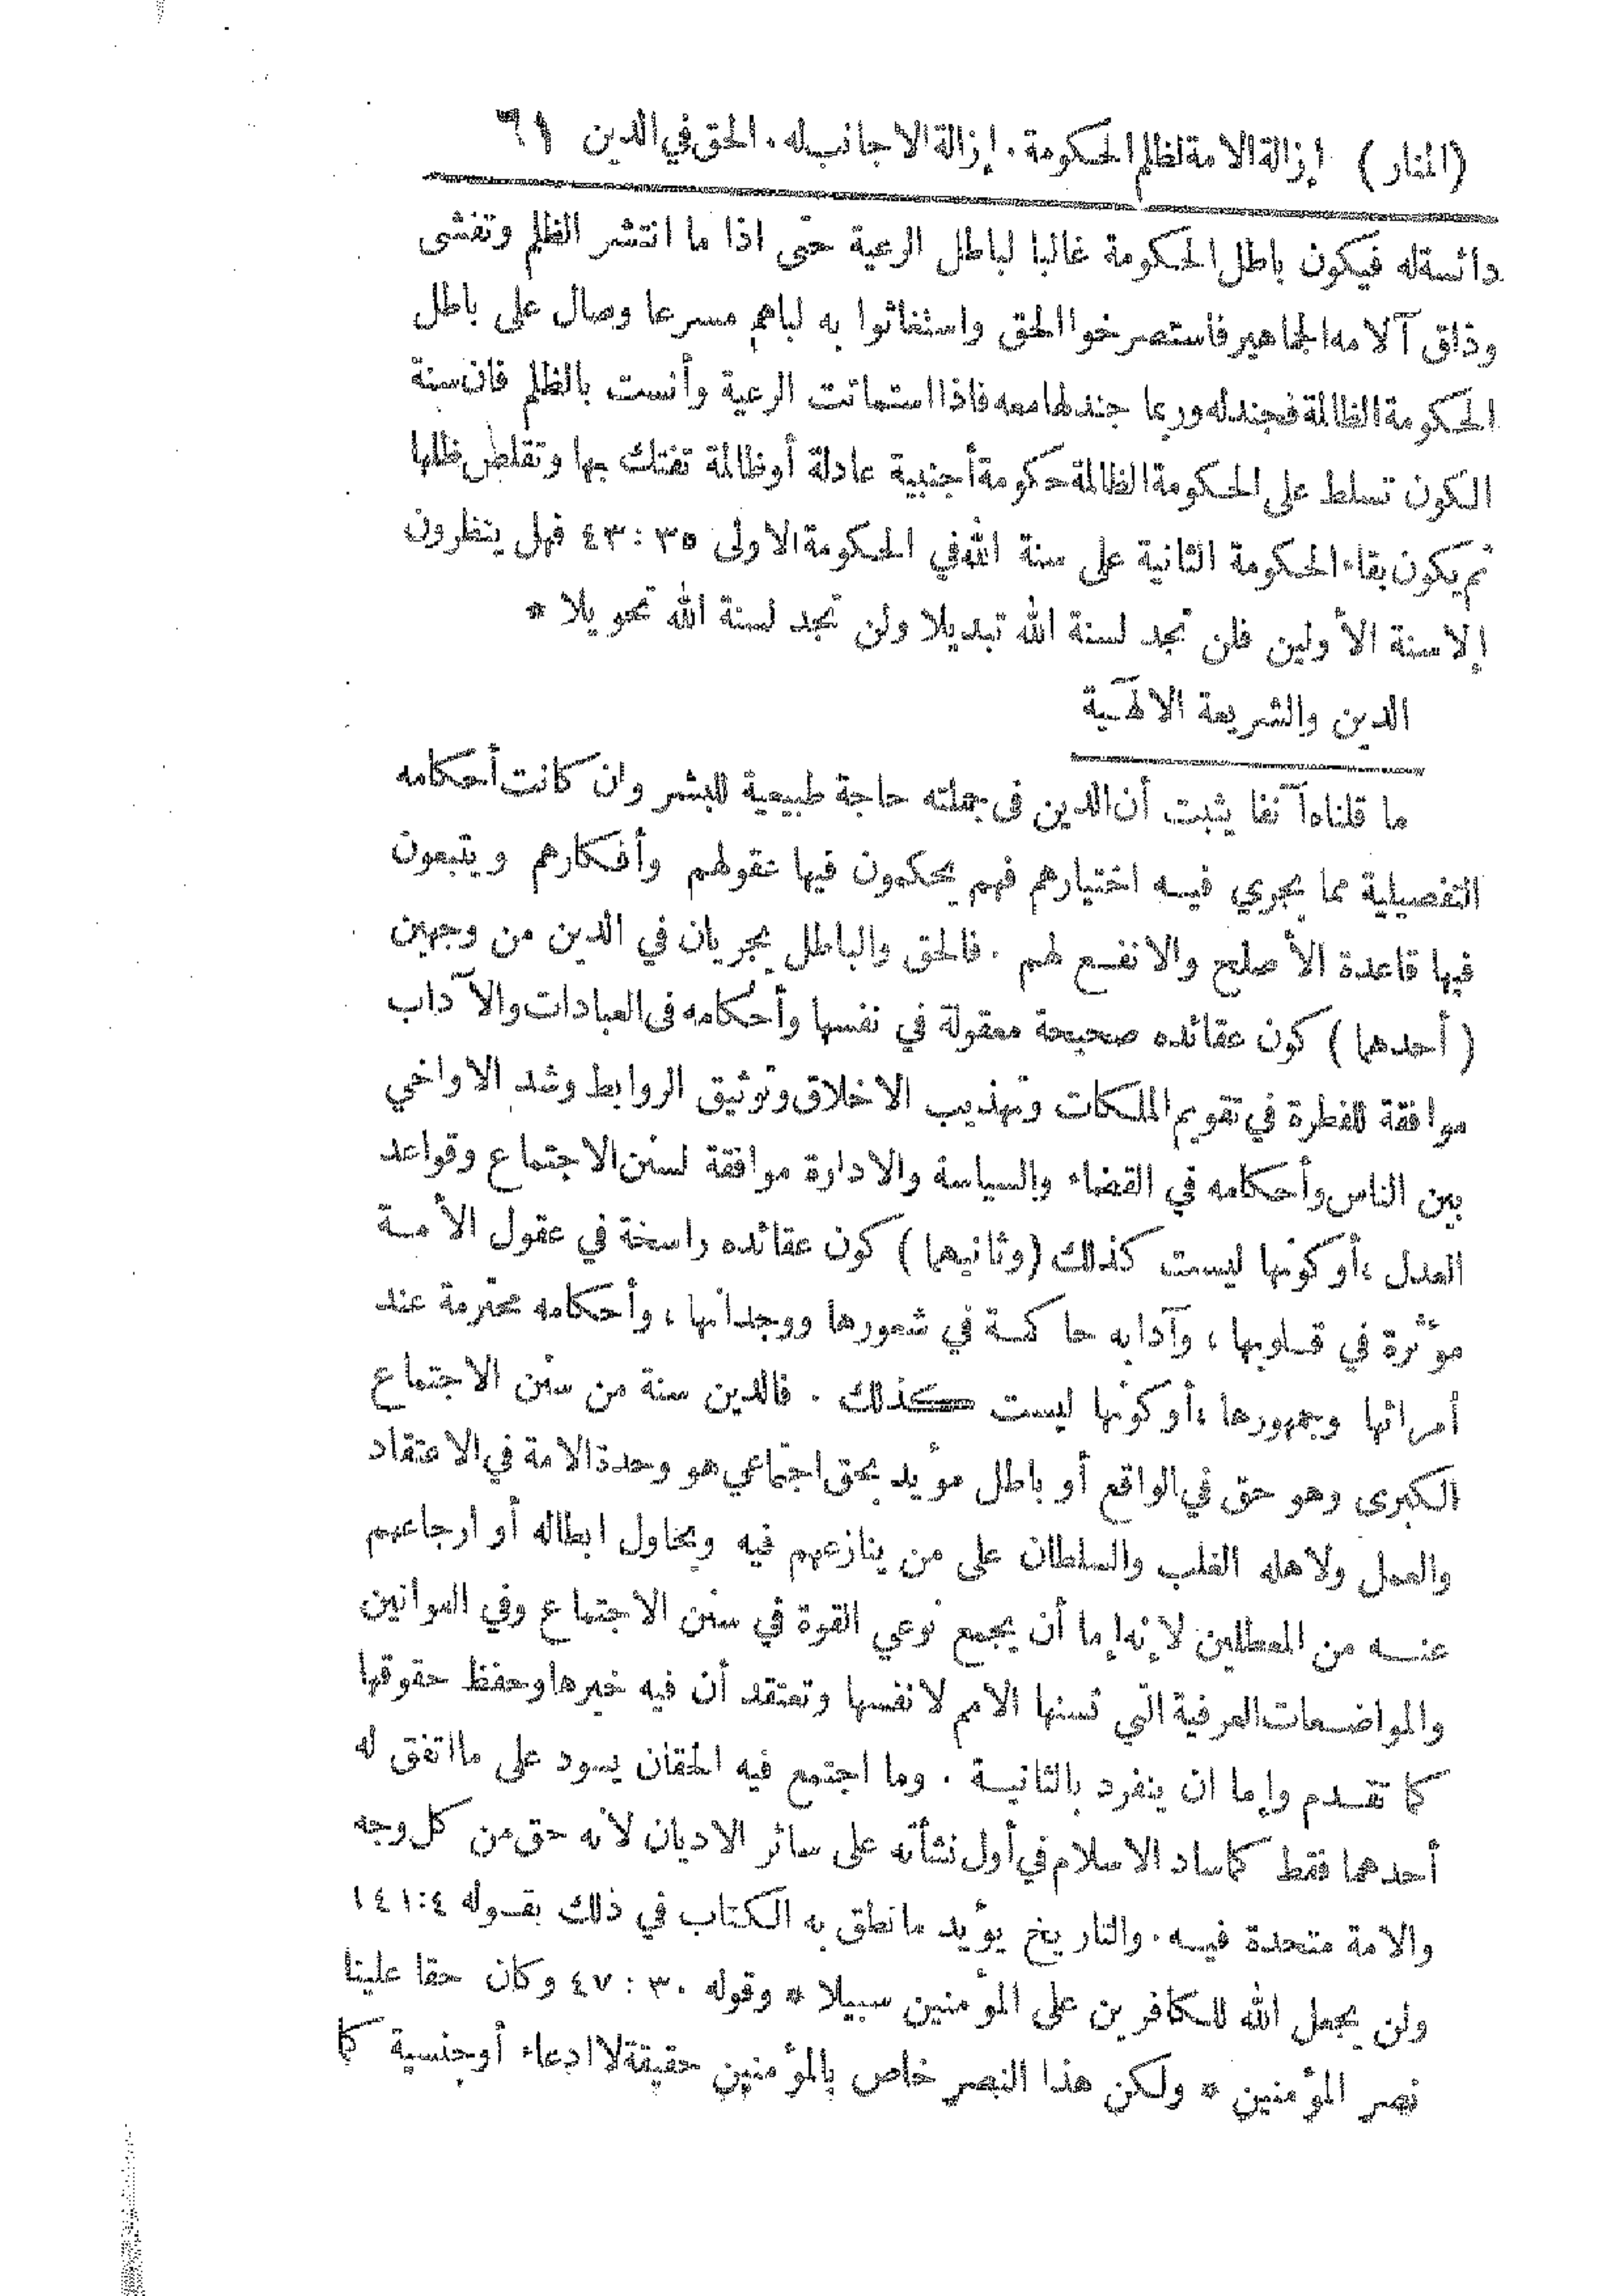 (المنار) إزالة الامة لظلم الحكومة . إزالة الاجانب له . الحق في الدين ٦١
دائسة له فيكون باطل الحكومة غالبا لباطل الرعية حتى اذا ما انتشر الظلم وتفشى
وذاق آلامه الجماهير فاستصرخوا الحق واستغاثوا به لباهم مسرعا وصال على باطل
الحكومة الظالمة فجندله وربما جندلها معه فاذا استماتت الرعية وأنست بالظلم فان سنة
الكون تسلط على الحكومة الظالمة حكومة أجنبية عادلة أو ظالمة تفتك بها وتقلص ظلها
ثم يكون بقاء الحكومة الثانية على سنة الله في الحكومة الاولى ٣٥ : ٤٣ فهل ينظرون
إلا سنة الأولين فلن تجد لسنة الله تبديلا ولن تجد لسنة الله تحويلا *
الدين والشريعة الالهية
ما قلناه آنفا يثبت أن الدين في جملته حاجة طبيعية للبشر وان كانت أحكامه
التفصيلية مما يجري فيه اختيارهم فهم يحكمون فيها عقولهم وأفكارهم ويتبعون
فيها قاعدة الأصلح والانفع لهم . فالحق والباطل يجريان في الدين من وجهين
(أحدهما) كون عقائده صحيحة معقولة في نفسها وأحكامه في العبادات والآداب
موافقة للفطرة في تقويم الملكات وتهذيب الاخلاق وتوثيق الروابط وشد الاواخي
بين الناس وأحكامه في القضاء والسياسة والادارة موافقة لسنن الاجتماع وقواعد
العدل ، أو كونها ليست كذلك (وثانيهما) كون عقائده راسخة في عقول الأمة
مؤثرة في قلوبها ، وآدابه حاكمة في شعورها ووجدانها ، وأحكامه محترمة عند
أمرائها وجمهورها ، أو كونها ليست كذلك . فالدين سنة من سنن الاجتماع
الكبرى وهو حق في الواقع أو باطل مؤيد بحق اجتماعي هو وحدة الامة في الاعتقاد
والعمل ولاهله الغلب والسلطان على من ينازعهم فيه ويحاول ابطاله أو ارجاعهم
عنه من المعطلين لإنه إما أن يجمع نوعي القوة في سنن الاجتماع وفي القوانين
والمواضعات العرفية التي تسنها الامم لانفسها وتعتقد أن فيه خيرها وحفظ حقوقها
كما تقدم وإما ان ينفرد بالثانية . وما اجتمع فيه الحقان يسود على ما اتفق له
أحدهما فقط كما ساد الاسلام في أول نشأته على سائر الاديان لأنه حق من كل وجه
والامة متحدة فيه . والتاريخ يؤيد ما نطق به الكتاب في ذلك بقوله ٤ : ١٤١
ولن يجعل الله للكافرين على المؤمنين سبيلا * وقوله ٣٠ : ٤٧ وكان حقا علينا
نصر المؤمنين * ولكن هذا النصر خاص بالمؤمنين حقيقة لا ادعاء أو جنسية كما